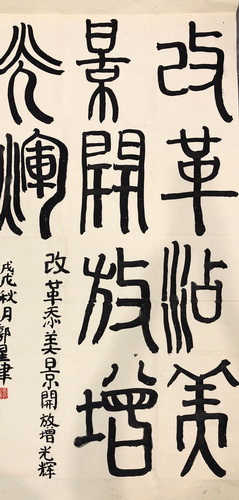 改革沾美
景開放增
光輝
改革忝美景開放增光輝
戊戌秋月郭星聿